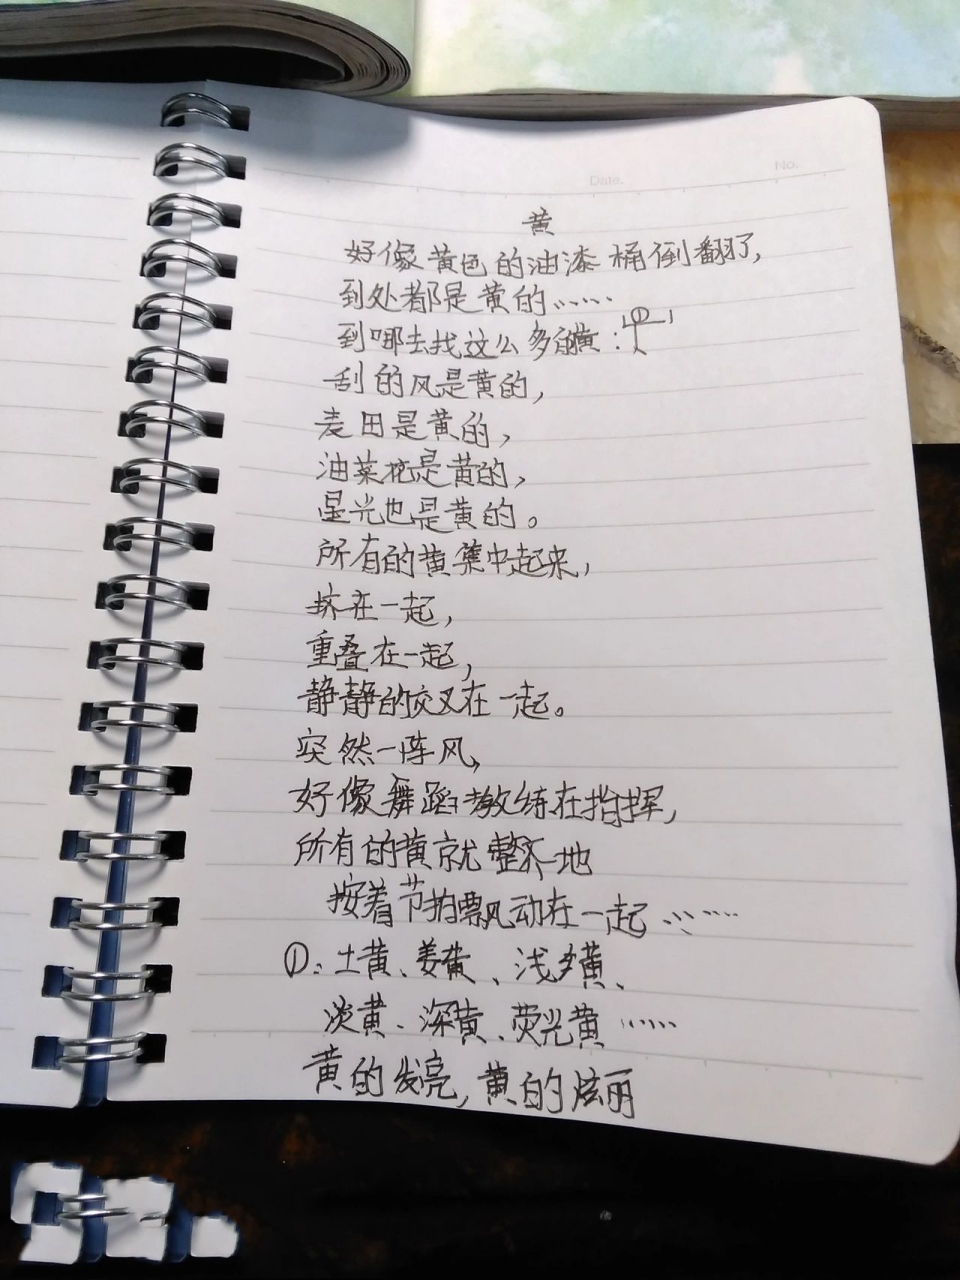 Date. No.
黄
好像黄色的油漆桶倒翻了,
到处都是黄的……
到哪去找这么多的黄:①
刮的风是黄的,
麦田是黄的,
油菜花是黄的,
星光也是黄的。
所有的黄集中起来,
挤在一起,
重叠在一起,
静静的交叉在一起。
突然一阵风,
好像舞蹈教练在指挥,
所有的黄就整齐地
按着节拍飘动在一起……
①:土黄、姜黄、浅黄、
淡黄、深黄、荧光黄……
黄的发亮,黄的炫丽